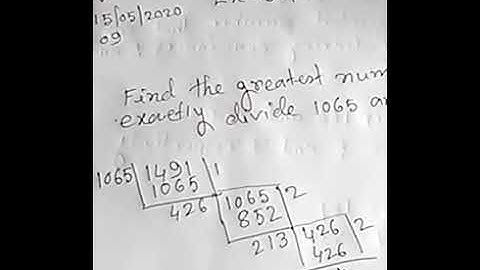 15/05/2020
09
Find the greatest num
exactly divide 1065 a
1065 1491 1
1065
426 1065 2
852
213 426 2
426